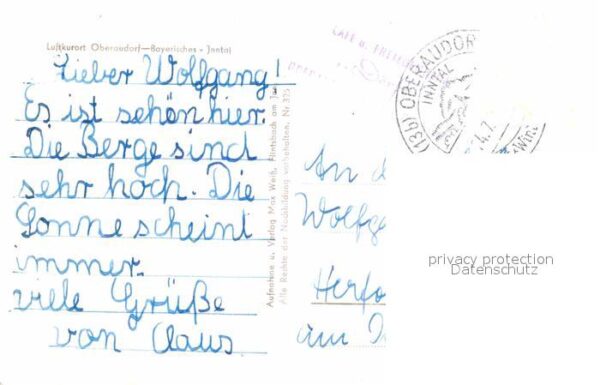 Luftkurort Oberaudorf—Bayerisches - Inntal
Lieber Wolfgang!
Es ist schön hier.
Die Berge sind
sehr hoch. Die
Sonne scheint
immer.
viele Grüße
von Claus
Aufnahme u. Verlag Max Weiß, Flintsbach am Inn
Alle Rechte der Nachbildung vorbehalten. Nr. 325
CAFE u. FREMD
(13b) OBERAUDOR
INNTAL
An d
Wolfg
privacy protection
Datenschutz
Herfo
am